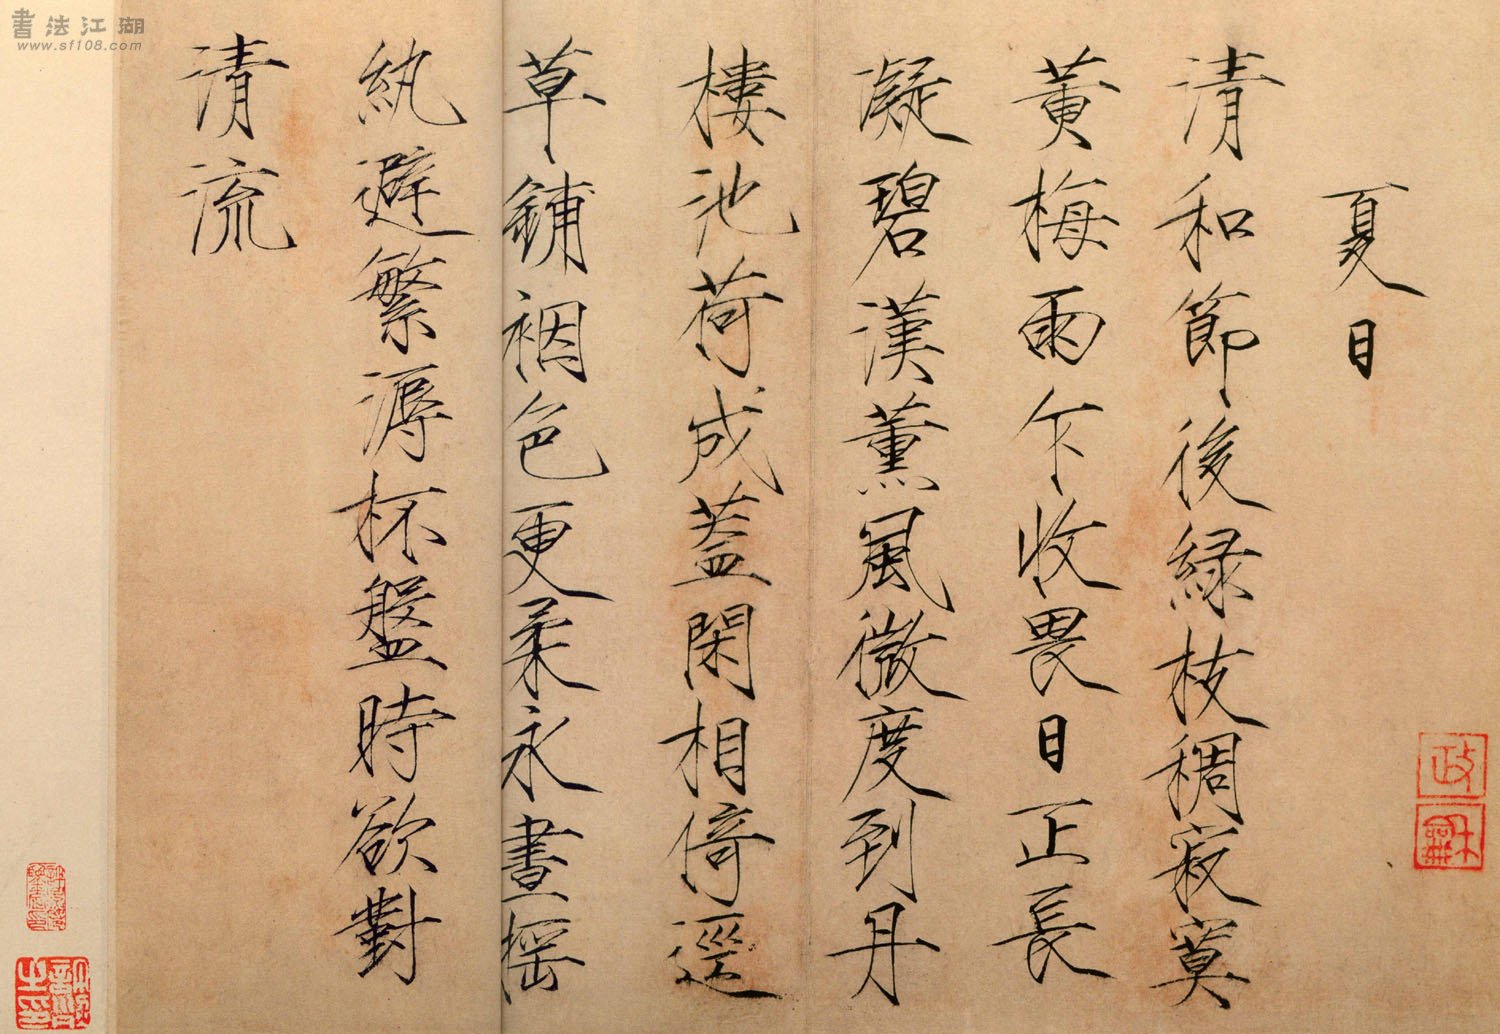 夏日
清和節後綠枝稠寂寞
黃梅雨乍收畏日正長
凝碧漢薰風微度到丹
樓池荷成蓋閑相倚逕
草鋪裀色更柔永晝搖
紈避繁溽杯盤時欲對
清流
政龢
書法江湖
www.sf108.com